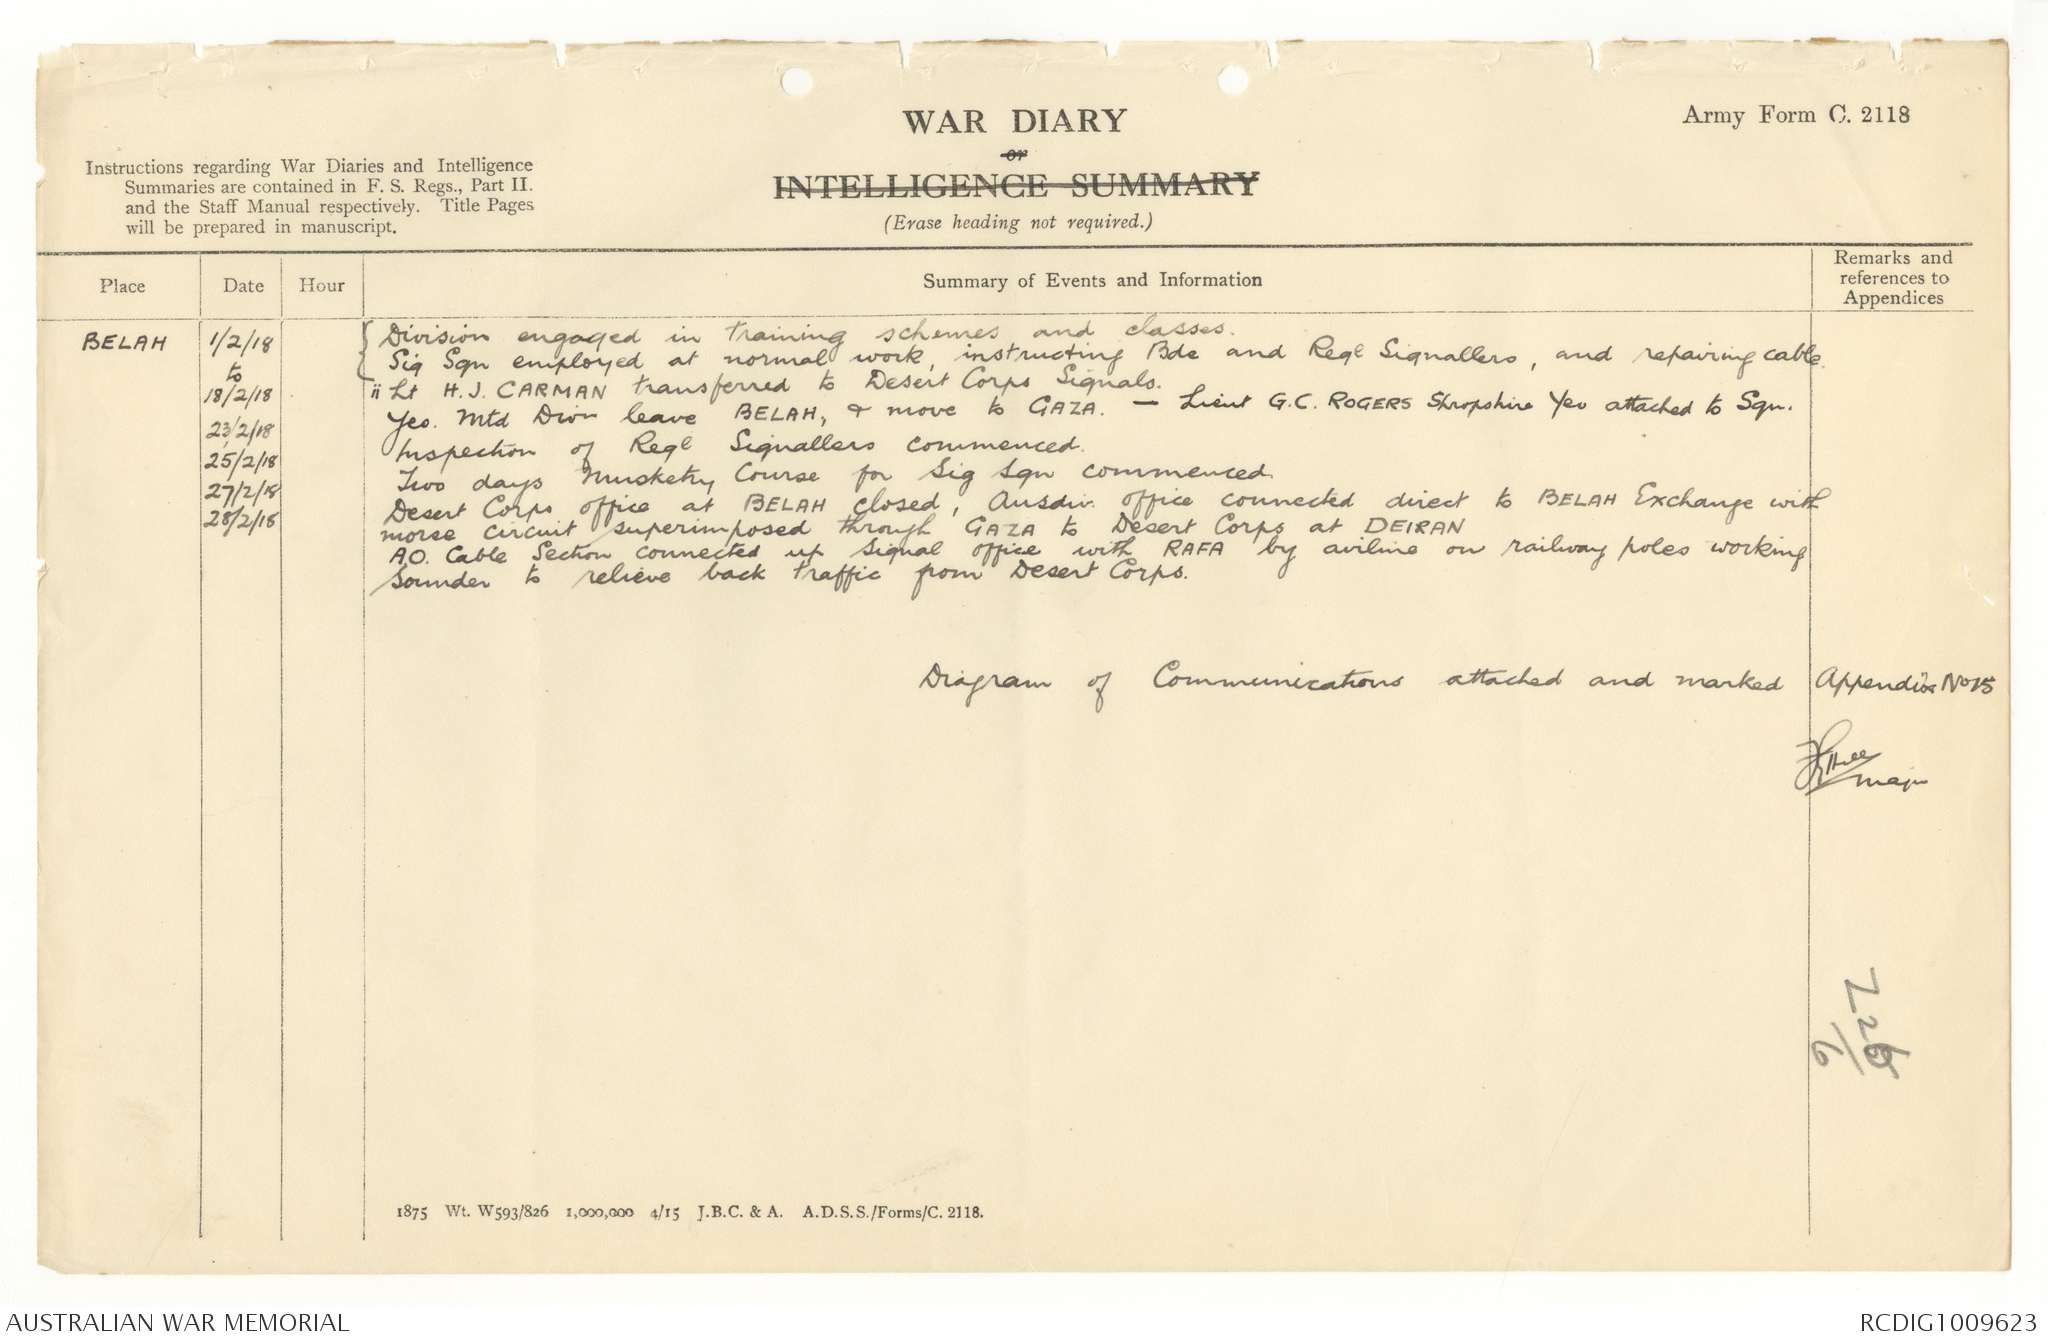 WAR DIARY
or
INTELLIGENCE SUMMARY
(Erase heading not required.)
Army Form C. 2118
Instructions regarding War Diaries and Intelligence
Summaries are contained in F. S. Regs., Part II.
and the Staff Manual respectively. Title Pages
will be prepared in manuscript.
Place Date Hour Summary of Events and Information Remarks and references to Appendices
BELAH 1/2/18 Division engaged in training schemes and classes.
to Sig Sqn employed at normal work, instructing Bde and Regl Signallers, and repairing cable.
18/2/18 " Lt H.J. CARMAN transferred to Desert Corps Signals.
23/2/18 Yeo. Mtd Divn leave BELAH, & move to GAZA. — Lieut G.C. ROGERS Shropshire Yeo attached to Sqn.
25/2/18 Inspection of Regl Signallers commenced.
27/2/18 Two days Musketry Course for Sig Sqn commenced.
28/2/18 Desert Corps office at BELAH closed, Ausdiv. office connected direct to BELAH Exchange with
morse circuit superimposed through GAZA to Desert Corps at DEIRAN
A.O. Cable Section connected up Signal office with RAFA by airline on railway poles working
Sounder to relieve back traffic from Desert Corps.
Diagram of Communications attached and marked Appendix No 15
Major
226
6
1875 Wt. W593/826 1,000,000 4/15 J.B.C. & A. A.D.S.S./Forms/C. 2118.
AUSTRALIAN WAR MEMORIAL
RCDIG1009623